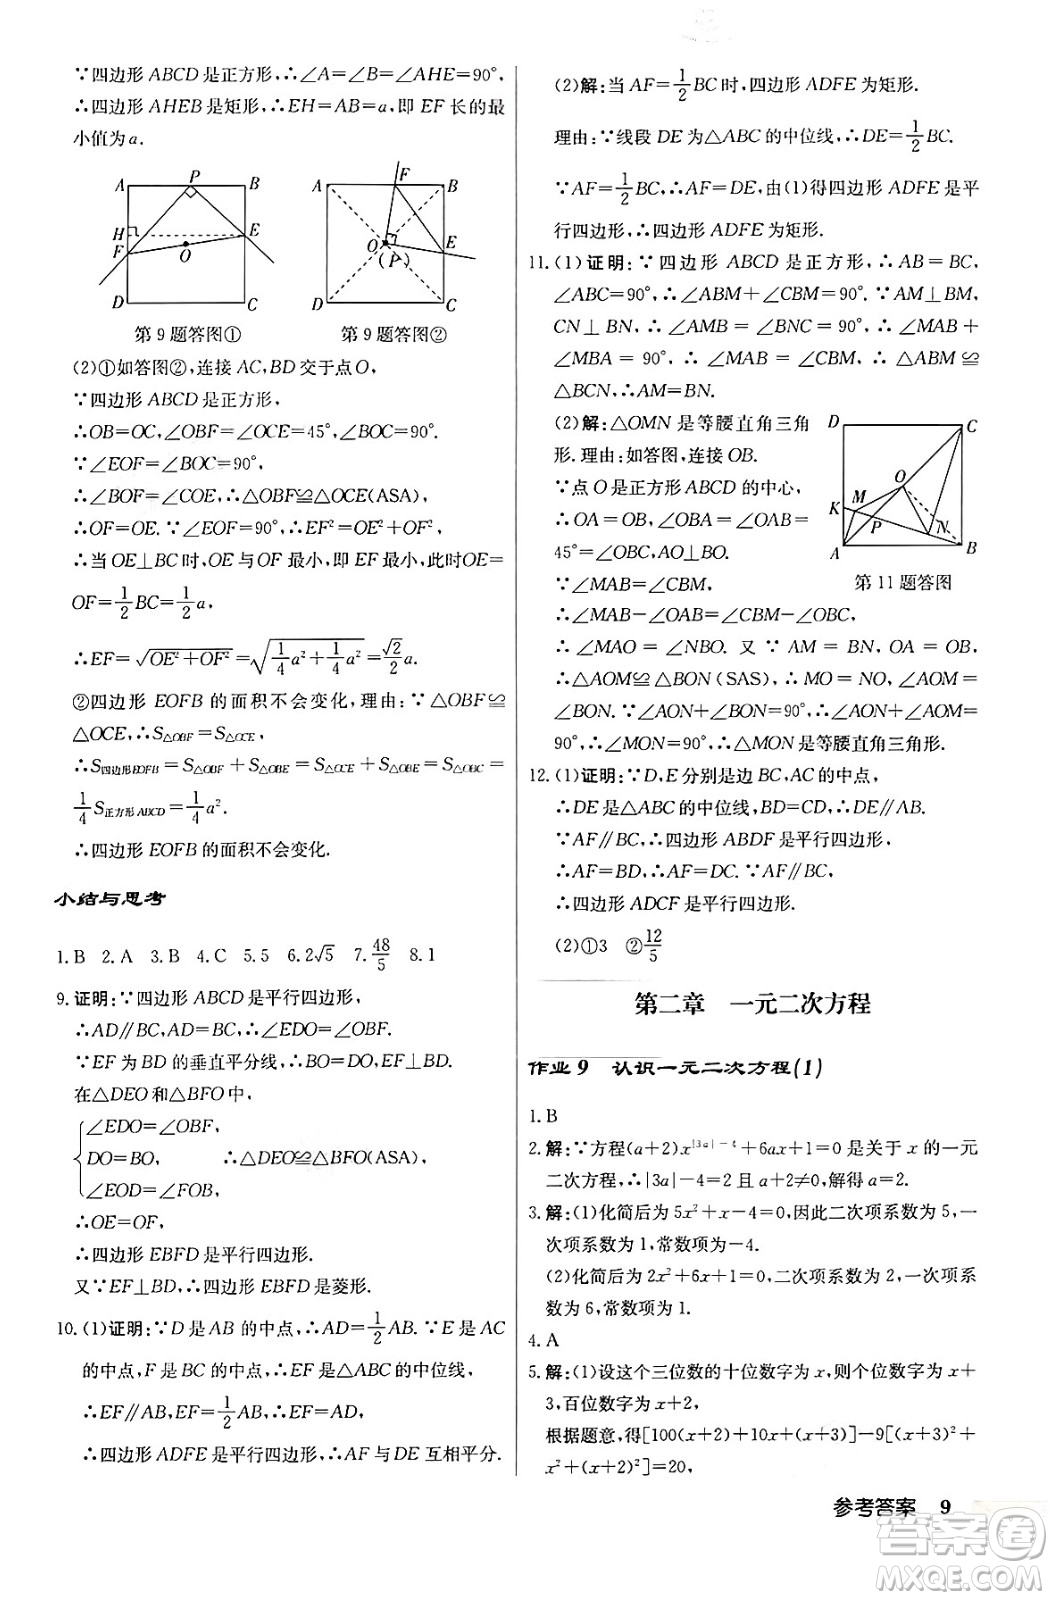 ∵四边形 ABCD 是正方形,∴∠A=∠B=∠AHE=90°,
∴四边形 AHEB 是矩形,∴EH=AB=a,即 EF 长的最
小值为a.
A P B
H E
F O
D C
第 9 题答图①
A F B
O E
(P)
D C
第 9 题答图②
(2)①如答图②,连接 AC,BD 交于点 O,
∵四边形 ABCD 是正方形,
∴OB=OC,∠OBF=∠OCE=45°,∠BOC=90°.
∵∠EOF=∠BOC=90°,
∴∠BOF=∠COE,∴△OBF≌△OCE(ASA),
∴OF=OE.∵∠EOF=90°,∴EF²=OE²+OF²,
∴当 OE⊥BC时,OE 与 OF 最小,即 EF 最小,此时OE=
OF=1/2 BC=1/2 a,
∴EF=√(OE²+OF²)=√(1/4 a²+1/4 a²)=√2/2 a.
②四边形 EOFB 的面积不会变化,理由:∵△OBF≌
△OCE,∴S△OBF=S△OCE,
∴S四边形EOFB=S△OBF+S△OBE=S△OCE+S△OBE=S△OBC=
1/4 S正方形ABCD=1/4 a².
∴四边形 EOFB 的面积不会变化.
小结与思考
1.B 2.A 3.B 4.C 5.5 6.2√5 7.48/5 8.1
9.证明:∵四边形 ABCD 是平行四边形,
∴AD∥BC,AD=BC,∴∠EDO=∠OBF.
∵EF 为 BD 的垂直平分线,∴BO=DO,EF⊥BD.
在△DEO 和△BFO 中,
∠EDO=∠OBF,
DO=BO, ∴△DEO≌△BFO(ASA),
∠EOD=∠FOB,
∴OE=OF,
∴四边形 EBFD 是平行四边形.
又∵EF⊥BD,∴四边形 EBFD 是菱形.
10.(1)证明:∵D 是 AB 的中点,∴AD=1/2 AB.∵E 是 AC
的中点,F 是 BC 的中点,∴EF 是△ABC 的中位线,
∴EF∥AB,EF=1/2 AB,∴EF=AD,
∴四边形 ADFE 是平行四边形,∴AF 与 DE 互相平分.
(2)解:当 AF=1/2 BC 时,四边形 ADFE 为矩形.
理由:∵线段 DE 为△ABC 的中位线,∴DE=1/2 BC.
∵AF=1/2 BC,∴AF=DE,由(1)得四边形 ADFE 是平
行四边形,∴四边形 ADFE 为矩形.
11.(1)证明:∵四边形 ABCD 是正方形,∴AB=BC,
∠ABC=90°,∴∠ABM+∠CBM=90°.∵AM⊥BM,
CN⊥BN,∴∠AMB=∠BNC=90°,∴∠MAB+
∠MBA=90°,∴∠MAB=∠CBM,∴△ABM≌
△BCN,∴AM=BN.
(2)解:△OMN 是等腰直角三角
形.理由:如答图,连接 OB.
∵点 O 是正方形 ABCD 的中心,
∴OA=OB,∠OBA=∠OAB=
45°=∠OBC,AO⊥BO.
∵∠MAB=∠CBM,
D C
O
M
K P N
A B
第 11 题答图
∴∠MAB−∠OAB=∠CBM−∠OBC,
∴∠MAO=∠NBO.又∵AM=BN,OA=OB,
∴△AOM≌△BON(SAS),∴MO=NO,∠AOM=
∠BON.∵∠AON+∠BON=90°,∴∠AON+∠AOM=
90°,∴∠MON=90°,∴△MON 是等腰直角三角形.
12.(1)证明:∵D,E 分别是边 BC,AC 的中点,
∴DE 是△ABC 的中位线,BD=CD,∴DE∥AB.
∵AF∥BC,∴四边形 ABDF 是平行四边形,
∴AF=BD,∴AF=DC.∵AF∥BC,
∴四边形 ADCF 是平行四边形.
(2)①3 ②12/5
第二章 一元二次方程
作业 9 认识一元二次方程(1)
1.B
2.解:∵方程(a+2)x^(|3a|−4)+6ax+1=0是关于 x 的一元
二次方程,∴|3a|−4=2 且 a+2≠0,解得 a=2.
3.解:(1)化简后为 5x²+x−4=0,因此二次项系数为 5,一
次项系数为 1,常数项为−4.
(2)化简后为 2x²+6x+1=0,二次项系数为 2,一次项系
数为 6,常数项为 1.
4.A
5.解:(1)设这个三位数的十位数字为 x,则个位数字为 x+
3,百位数字为 x+2,
根据题意,得[100(x+2)+10x+(x+3)]−9[(x+3)²+
x²+(x+2)²]=20,
参考答案 9
答案圈
MXQE.COM